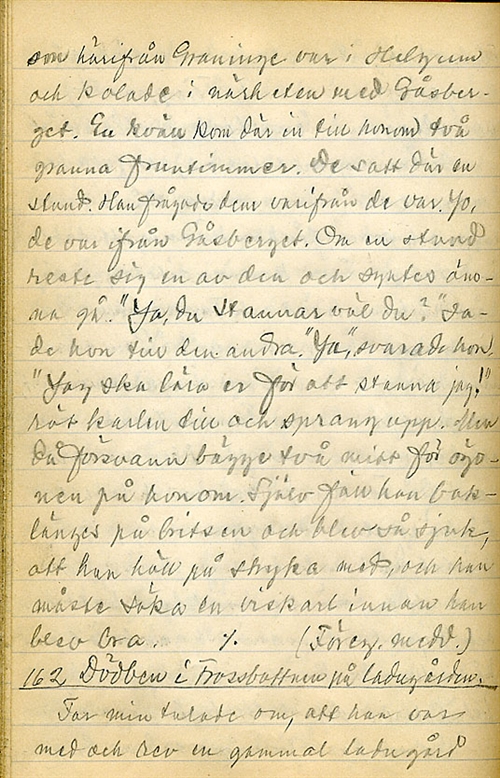 som härifrån Graninge var i Helgum
och kolade i närheten med Gåsber-
get. En kväll kom där in till honom två
granna fruntimmer. De satt där en
stund. Han frågade dem varifrån de var. Jo,
de var ifrån Gåsberget. Om en stund
reste sig en av dem och syntes äm-
na gå. "Ja, du stannar väl du?" sa-
de hon till den andra. "Ja", svarade hon.
"Jag ska lära er för att stanna jag!"
röt karlen till och sprang upp. Men
då försvann bägge två mitt för ögo-
nen på honom. Själv föll han bak-
länges på britsen och blev så sjuk,
att han höll på stryka med, och han
måste söka en viskarl innan han
blev bra. ٪. (Föreg. medd.)
162, Dödben i Trossbottnen på ladugården.
Far min talade om, att han var
med och rev en gammal ladugård